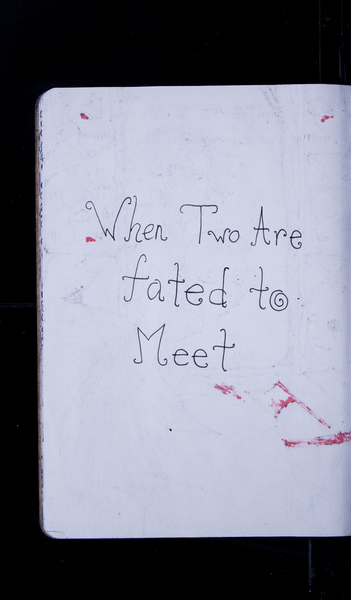 When Two Are
fated to
Meet